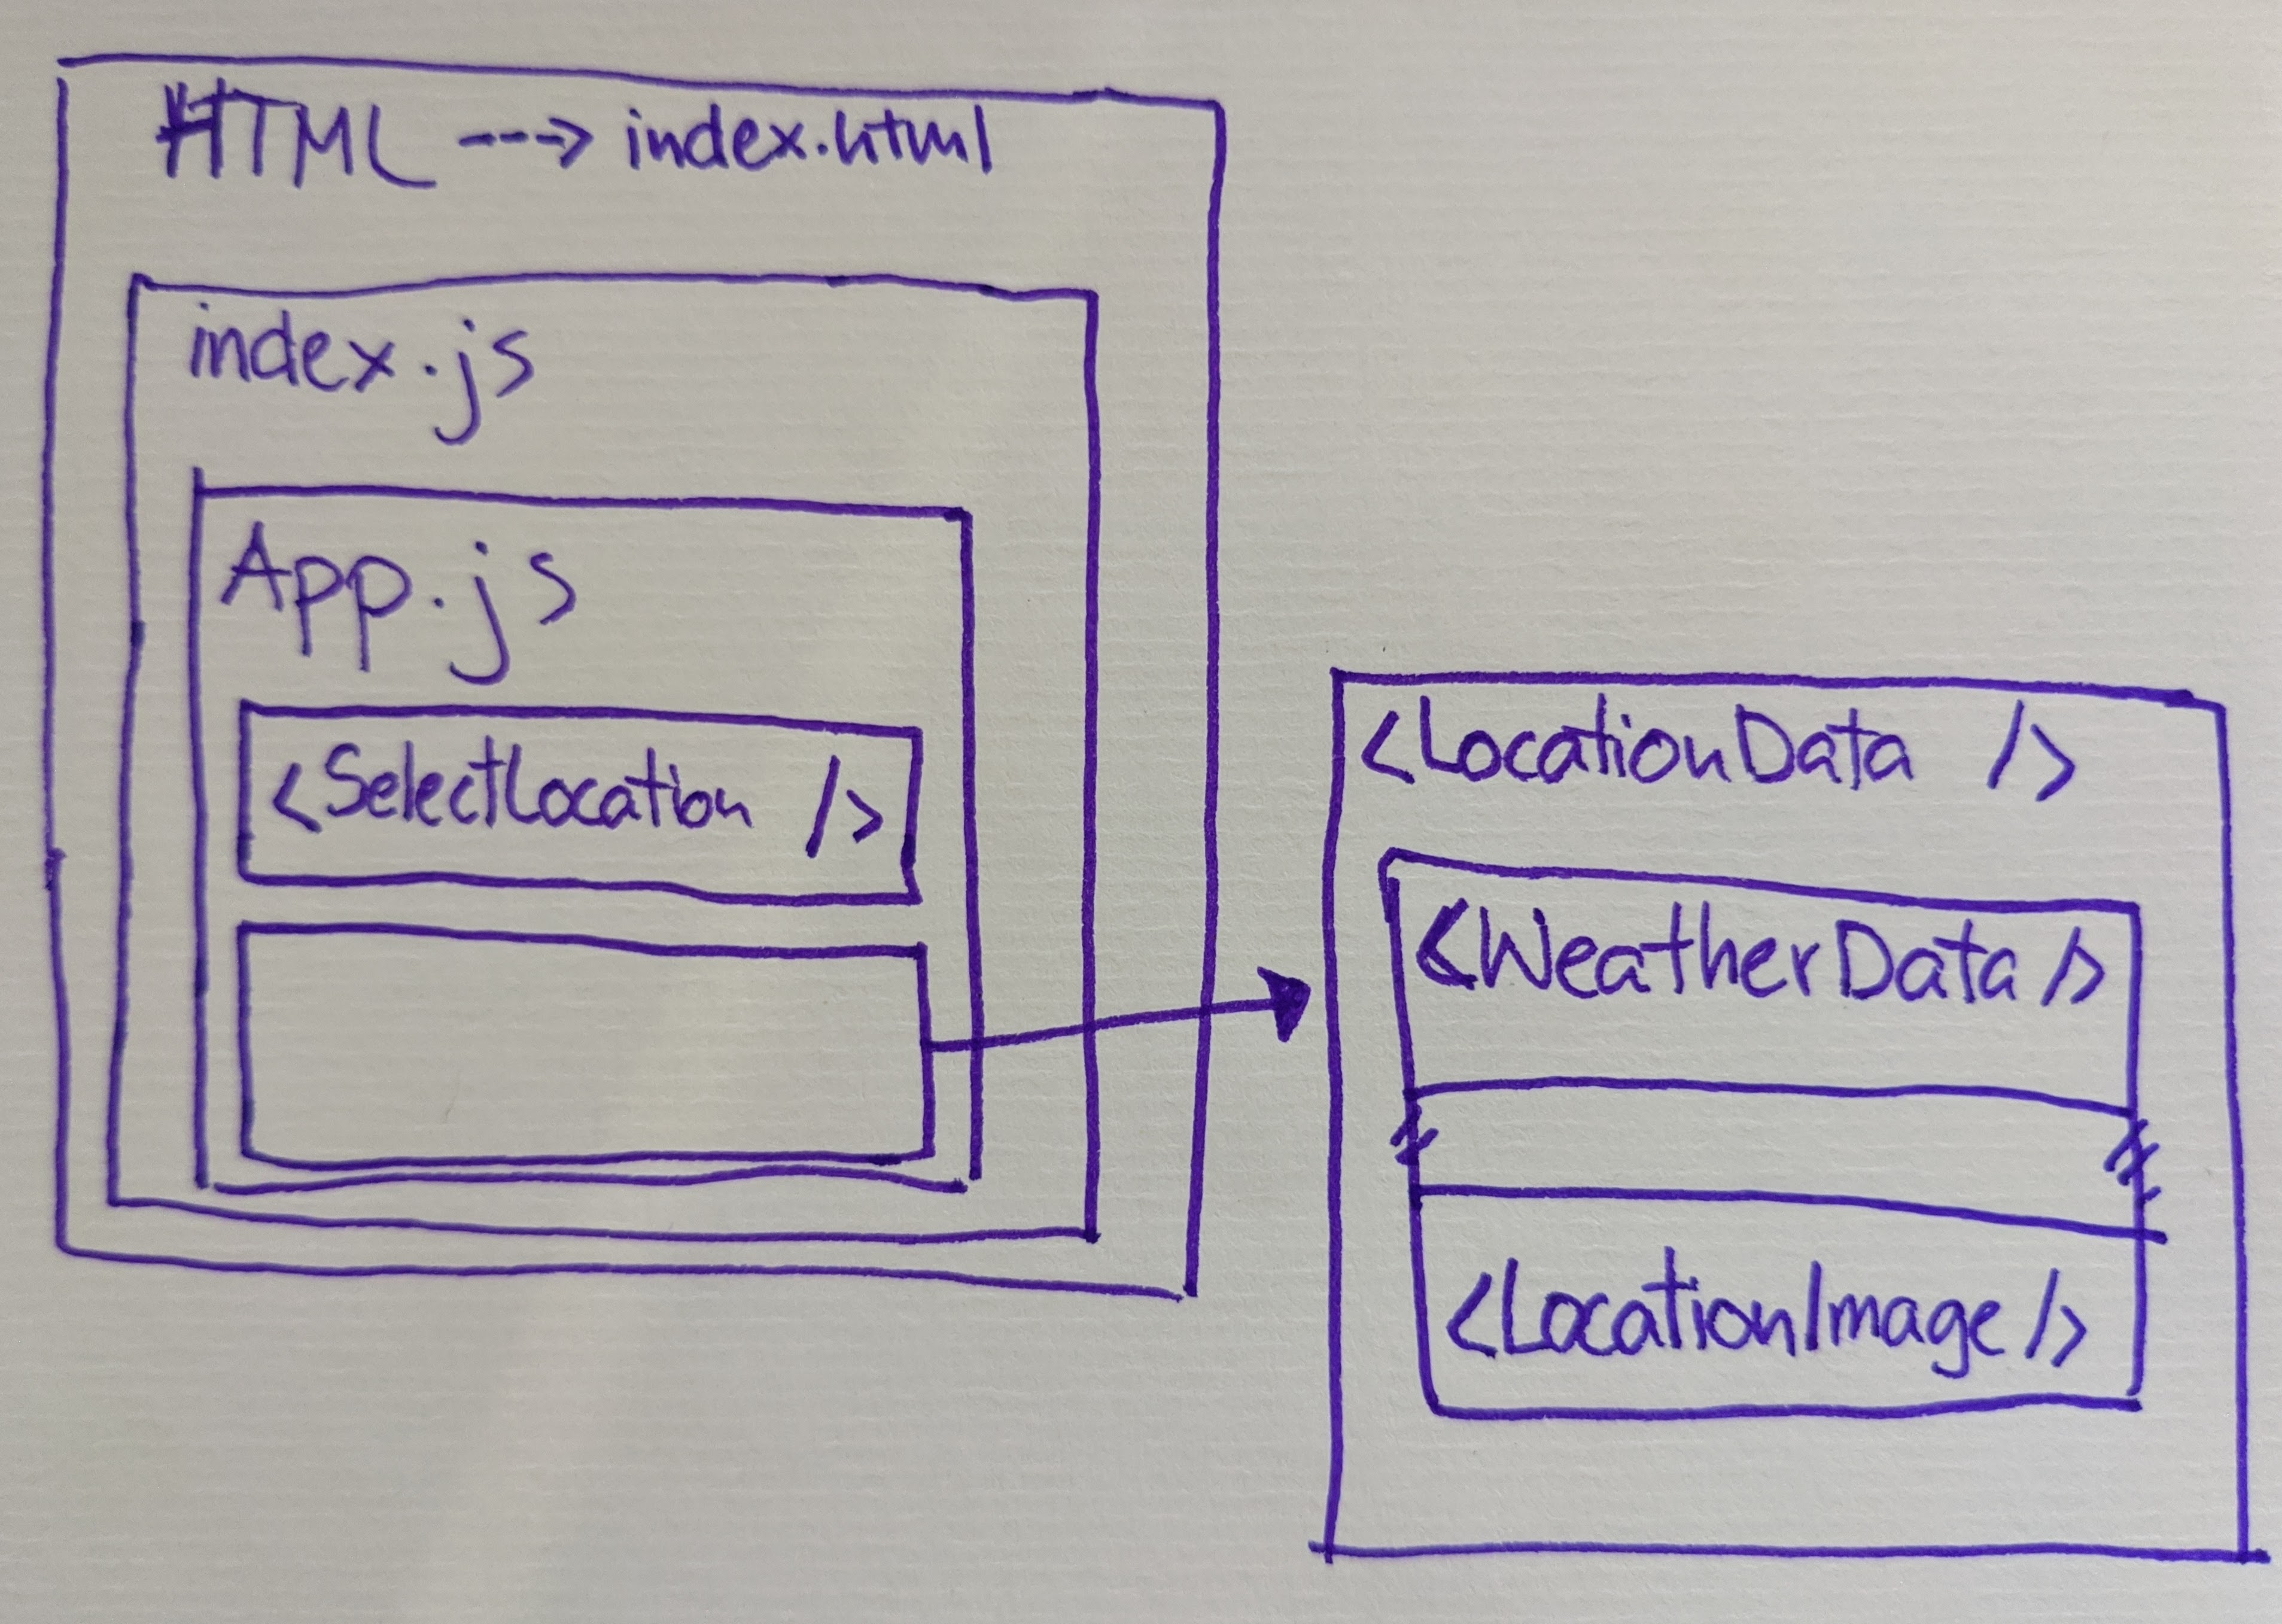 HTML ---> index.html
index.js
App.js
<SelectLocation />
<LocationData />
<WeatherData />
<LocationImage />